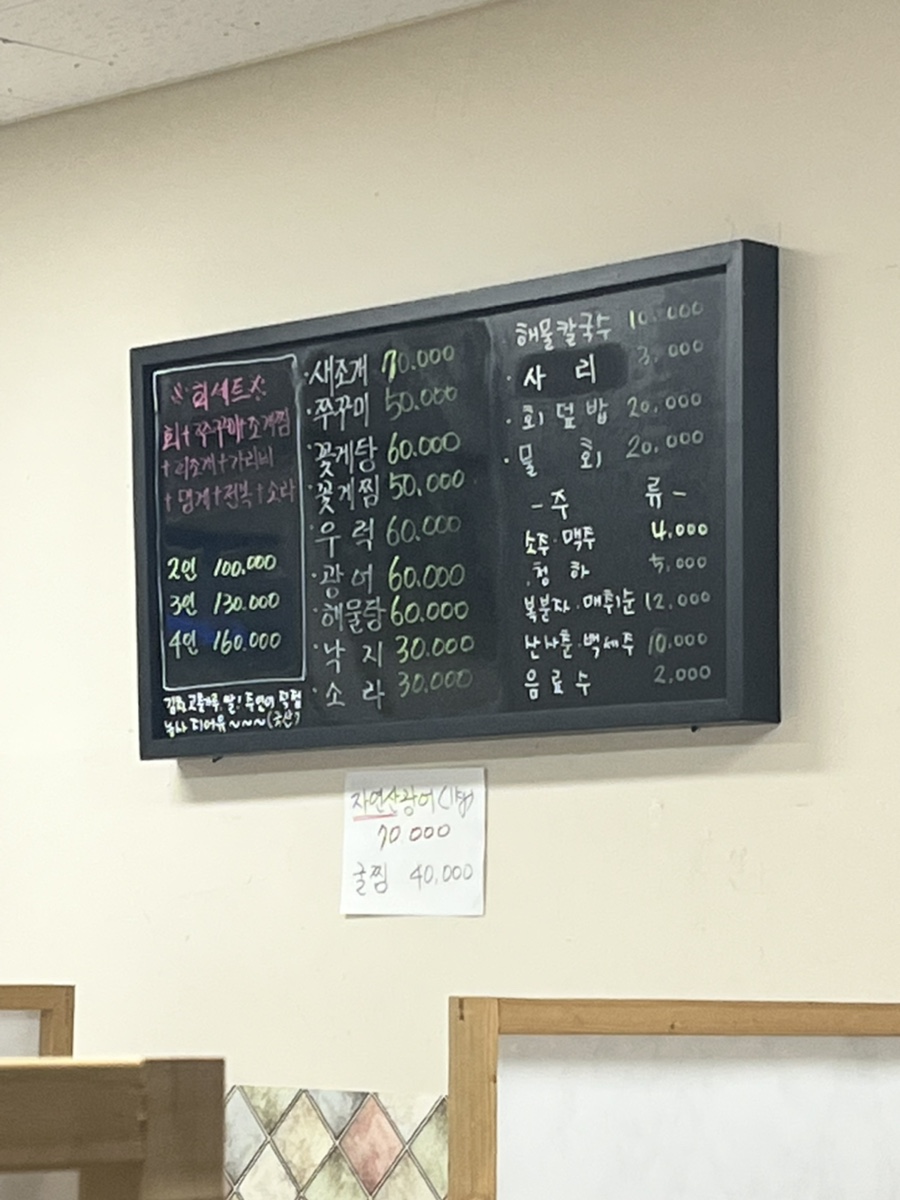 회세트
회+쭈꾸미+조개찜
+키조개+가리비
+멍게+전복+소라
2인 100,000
3인 130,000
4인 160,000
김치, 고춧가루, 쌀! 주인이 직접
농사 지어유~~~(국산)
·새조개 70.000
·쭈꾸미 50.000
·꽃게탕 60.000
·꽃게찜 50.000
·우럭 60.000
·광어 60.000
·해물탕 60.000
·낙지 30.000
·소라 30.000
·해물칼국수 10.000
·사리 3.000
·회덮밥 20,000
·물회 20,000
-주류-
소주·맥주 4,000
·청하 5,000
복분자·매취순 12,000
산사춘·백세주 10,000
음료수 2,000
자연산광어
70 000
굴찜 40,000